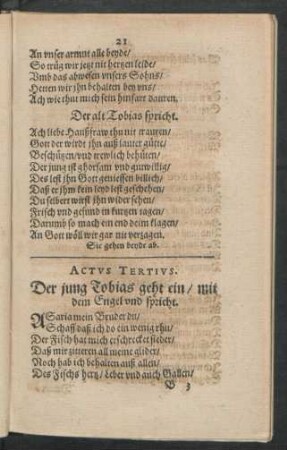 21
An vnser armut alle beyde/
So trüg wir jezt nit hertzen leide/
Vmb das abwesen vnsers Sohns/
Hetten wir jhn behalten bey vns/
Ach wie thut mich sein hinfart dauren.
Der alt Tobias spricht.
Ach liebe Haußfraw thu nit trauren/
Gott der wirdt ihn auß lauter gütte/
Beschützen/vnd trewlich behüten/
Der jung ist ghorsam vnd gutwillig/
Des lest jhn Gott geniessen billich/
Daß er jhm kein leyd lest geschehen/
Du selbert wirst jhn wider sehen/
Frisch vnd gesund in kurtzen tagen/
Darumb so mach ein end deim klagen/
An Gott wöll wir gar nit verzagen.
Sie gehen beyde ab.
ACTVS TERTIVS.
Der jung Tobias geht ein/ mit
dem Engel vnd spricht.
ASaria mein Bruder du/
Schaff daß ich do ein wenig rhu/
Der Fisch hat mich erschrecket sieder/
Daß mir zitteren all meine glider/
Noch hab ich behalten auß allen/
Des Fischs hertz/ leber vnd auch Gallen/
B 3